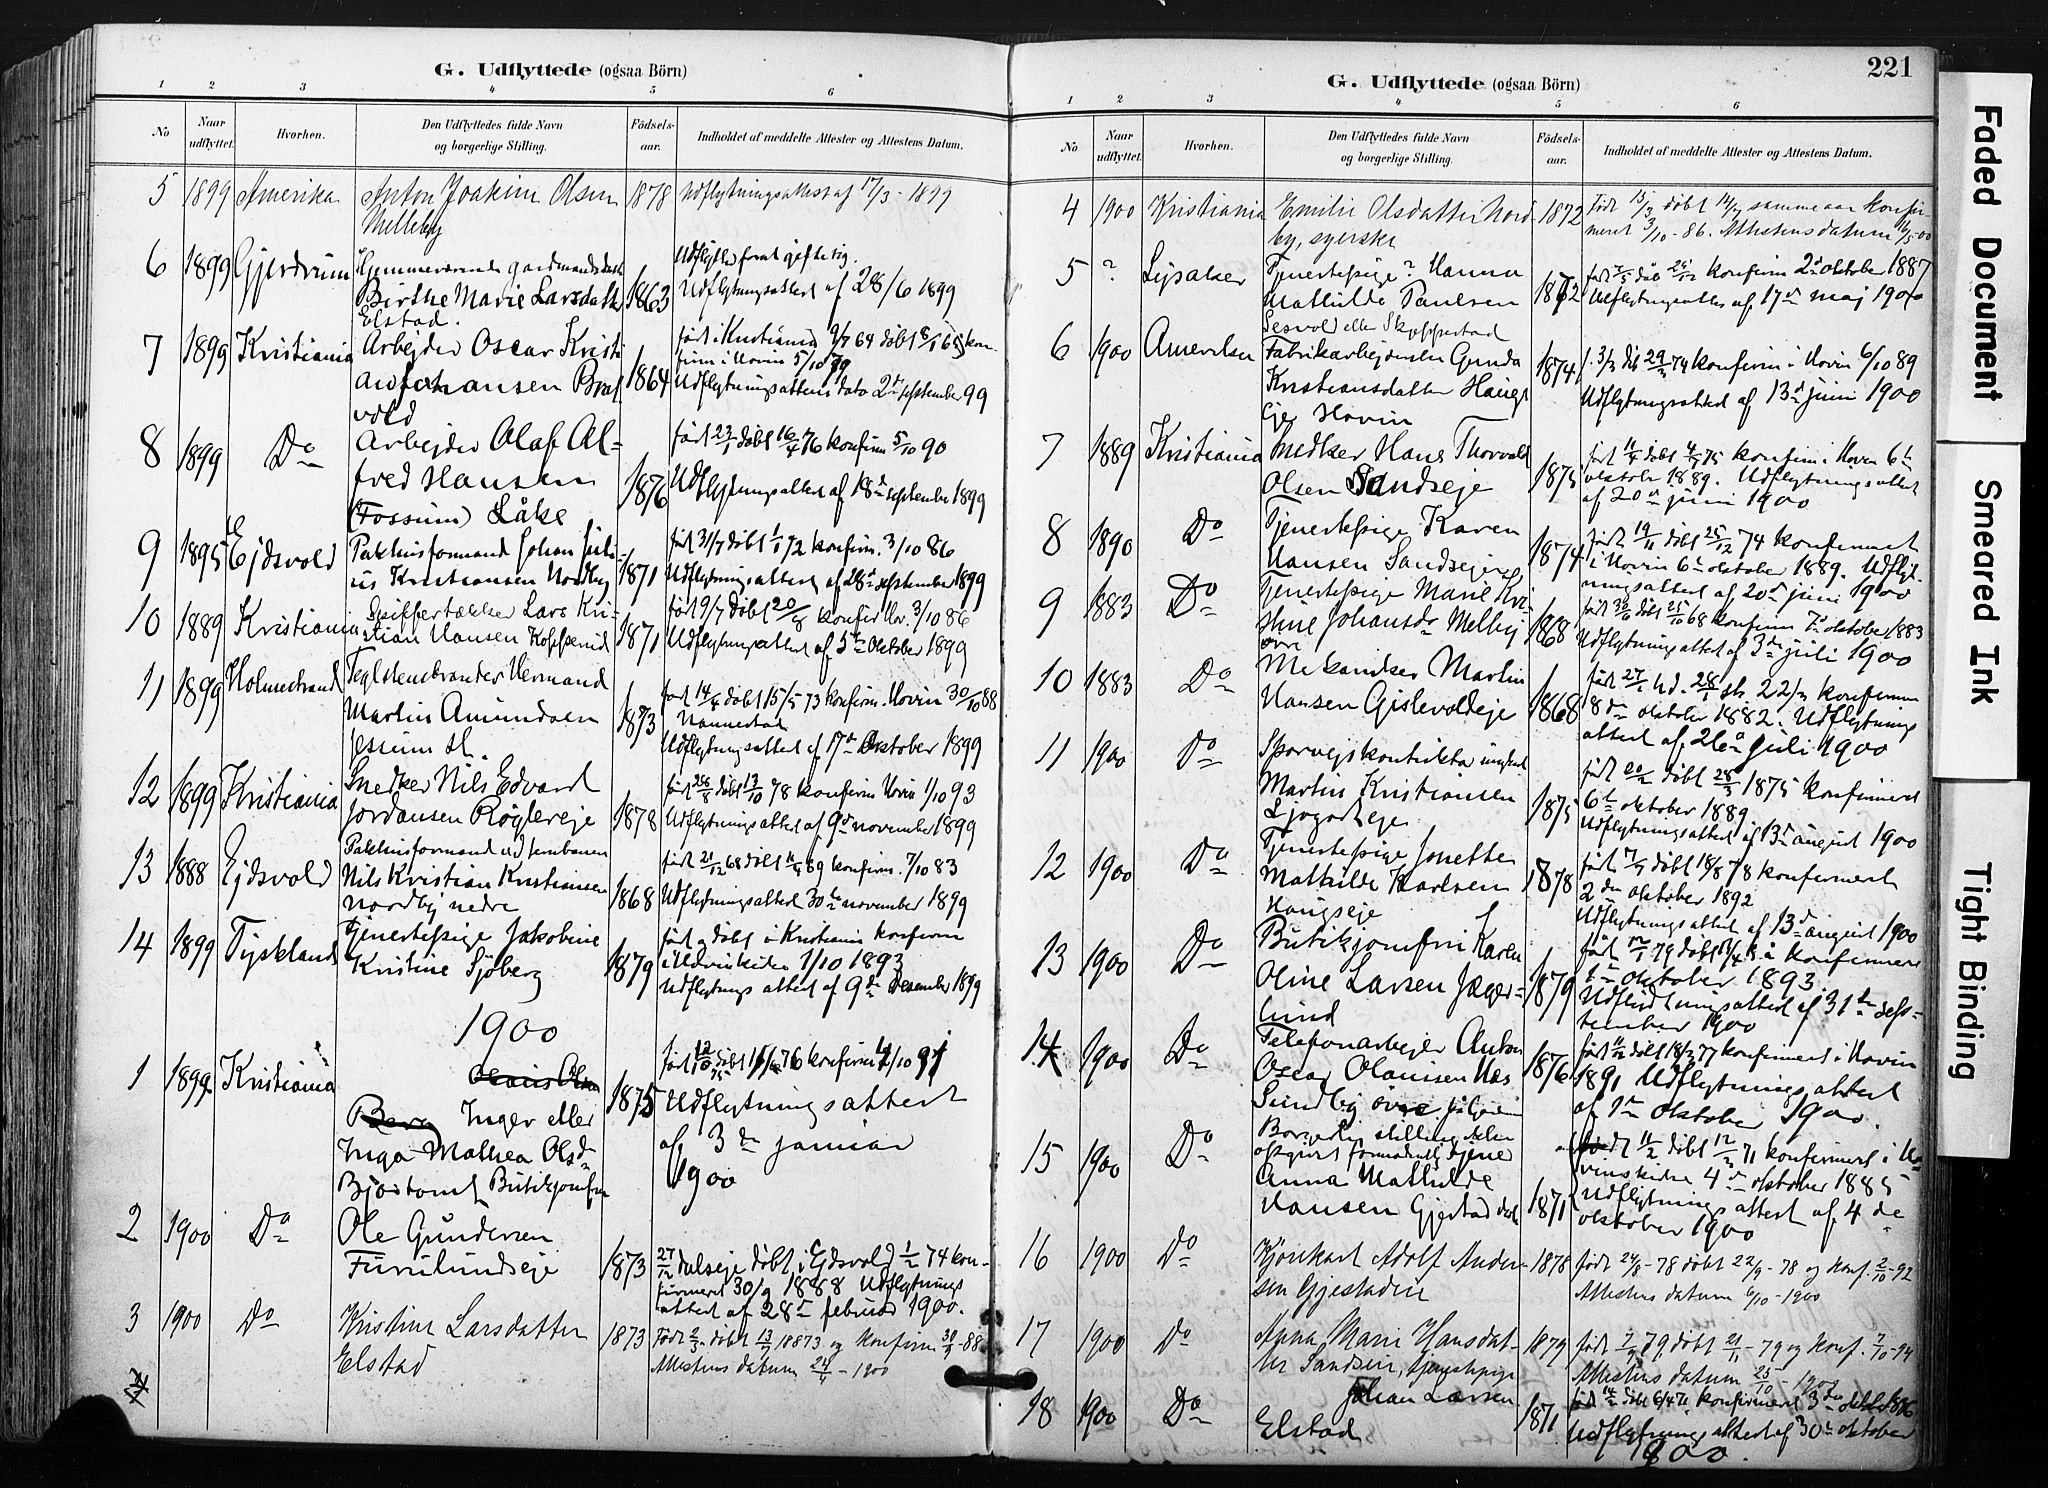 G. Udflyttede (ogsaa Börn)
1 2 3 4 5 6
No
Naar udflyttet.
Hvorhen.
Den Udflyttedes fulde Navn og borgerlige Stilling.
Födsels-aar.
Indholdet af meddelte Attester og Attestens Datum.
5 1899 Amerika Anton Joakim Olsen 1878 Udflytningsattest af 17/3 - 1899
Melleby
6 1899 Gjerdrum Hjemmeværende gaardmandsdatter Udflytter for at gifte sig.
Birthe Marie Larsdatter 1863 Udflytningsattest af 28/6 1899
Elstad.
7 1899 Kristiania Arbejder Oscar Kristi
født i Kristiania 9/7 64 døbt 8/1 65 kon-
firm i Hovin 5/10 79
1864 Udflytningsattestens dato 2den september 99
vold
8 1899 Do Arbejder Olaf Al- født 23/1 døbt 16/4 76 konfirm 5/10 90
fred Hansen 1876 Udflytningsattest af 18de september 1899
(Fossum) Låke
9 1895 Ejdsvold Pakhusformand Johan Juli- født 31/7 døbt 1/1 72 konfirm. 3/10 86
us Kristiansen Nordby 1871 Udflytningsattest af 28de september 1899
10 1889 Kristiania Skiffertækker Lars Kri- født 9/7 døbt 20/8 konfir Hov. 3/10 86
stian Hansen Kopperud 1871 Udflytningsattest af 5te Oktober 1899
11 1899 Holmestrand Teglstensbrænder Hermand
født 14/4 døbt 15/5 73 konfirm. Hovin 30/10 88
Martin Amundsen 1873 Nannestad
Jessum st. Udflytningsattest af 17de Oktober 1899
12 1899 Kristiania Snedker Nils Edvard født 28/8 døbt 13/10 78 konfirm Hovin 1/10 93
Jordansen Røglereje 1878 Udflytningsattest af 9de november 1899
13 1888 Ejdsvold Pakhusformand ved jernbanen født 21/12 68 døbt 11/4 69 konfirm. 7/10 83
Nils Kristian Kristiansen 1868 Udflytningsattest 30te november 1899
Nordby nedre
14 1899 Tyskland Tjenestepige Jakobine født og døbt i Kristiania konfirm
Kristine Sjøberg 1879 i Udviskiden 1/10 1893
Udflytnings attest af 9de Desember 1899
1900
1 1899 Kristiania Olaus Olsen 1875
Berg Inger eller Udflytningsattest
Inga Mathea Olsd af 3de januar
Bjøstomt Butikjomfru 1900
2 1900 Do Ole Gundersen
Furulundseje 1873 27/12 dalseje døbt i Ejdsvold 1/2 74 kon-
firmeret 30/9 1888 Udflytnings
attest af 28de februar 1900.
3 1900 Do Kristine Larsdatter 1873 Født 2/3 døbt 13/7 1873 og konfirm 30/9 - 88
Elstad Attestens datum 24/4 - 1900
4
G. Udflyttede (ogsaa Börn)
221
1 2 3 4 5 6
No
Naar udflyttet.
Hvorhen.
Den Udflyttedes fulde Navn og borgerlige Stilling.
Födsels-aar.
Indholdet af meddelte Attester og Attestens Datum.
4 1900 Kristiania Emilie Olsdatter Nord 1872 Født 15/3 døbt 14/7 samme aar konfir-
by, syerske meret 3/10 - 86. Attestens datum 16/5-00
5 ? Lysaker Tjenestepige? Hanna født 7/5 døb 25/12 konfirm 2de oktober 1887
Mathilde Paulsen 1872 Udflytningsattes af 17de maj 1900
Sesvold eller Skjeppestad
6 1900 Amerika Fabrikarbejderske Gunda 1874 f. 3/3 døb 29/3 74 konfirm i Hovin 6/10 89
Kristiansdatter Haugs Udflytningsattest af 13de juni 1900
eje Hovin
7 1889 Kristiania Snedker Hans Thorvald født 11/4 døbt 4/7 75 konfirm i Hovin 6te
Olsen Sandseje 1875 oktober 1889. Udflytningsattest
af 20de juni 1900
8 1890 Do Tjenestepige Karen født 19/11 døbt 25/12 74 konfirmeret
Hansen Sandseje 1874 i Hovin 6te oktober 1889. Udflyt-
ningsattest af 20de juni 1900
9 1883 Do Tjenestepige Marie Kri- født 30/6 døbt 25/10 68 konfirm 7de oktober 1883
stine Johansdr Melby 1868 Udflytningsattest af 3die juli 1900
øvre
10 1883 Do Mekaniker Martin født 27/1 hd. 28/1 st. 22/3 konfirmm
Hansen Gislevoldeje 1868 8de oktober 1882. Udflytnings
attest af 26de juli 1900
11 1900 Do Sporvejskonduktør ungkarl født 20/2 døbt 28/3 1875 konfirmeret
Martin Kristiansen 1875 6te oktober 1889
Ljøgodteje Udflytningsattest af 13de august 1900
12 1900 Do Tjenestepige Jonette født 7/7 døbt 18/8 78 konfirmert
Mathilde Karlsen 1878 2den oktober 1892
Haugseje Udflytningsattest af 13de august 1900
13 1900 Do Butikjomfru Karen
Oline Larsen Jæger- 1879 1ste oktober 1893.
lund Udflytningsattest af 31te sep-
tember 1900
14 1900 Do Telefonarbejder Anton født 11/12 døbt 18/3 77 konfirmert i Hovin
Oscar Olausen Næs 1876 1891 Udflytnings attest
Sundby øvre af 1ste oktober 1900.
15 1900 Do Borgerlig stilling ikke født 11/2 døbt 12/3 71 konfirmert i Ho-
opgivet formodentlig tjene vinskirke 4de oktober 1885
Anna Mathilde Udflytnings attest af 4de
Hansen Gjestad 1871 oktober 1900
16 1900 Do Kjørekarl Adolf Ander- 1878 født 24/8 - 78 døbt 22/9 - 78 og konf. 2/10 - 92
sen Gjestadeie Attestens datum 6/10 - 1900
17 1900 Do Anna Marie Hansdat- 1879 født 7/9 79 døbt 21/11 - 79 og konf. 7/10 - 94
ter Sandseie, tjenestepige Attestens datum 23/10 - 1900
18 1900 Do Johan Larsen født 14/2 døbt 6/4 71 konfirmeret 3de oktob 1886
Elstad 1871 Udflytnings attest af 30te oktober
1900.
Faded Document
Smeared Ink
Tight Binding